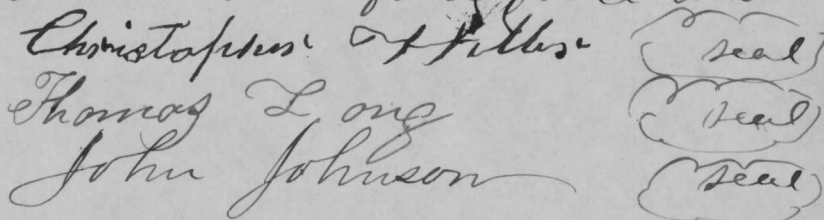 Christopher seal
Thomas Long seal
John Johnson seal